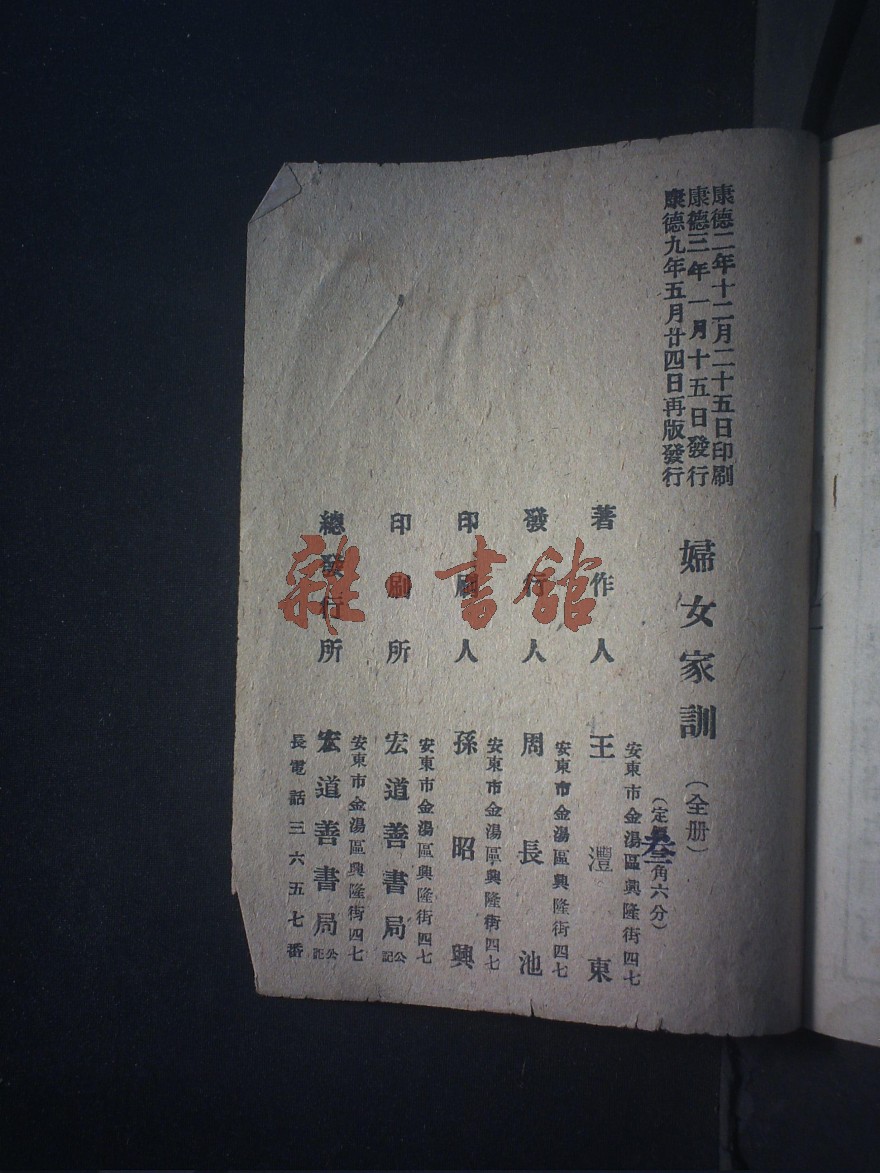 康德二年十二月二十五日印刷
康德三年一月十五日發行
康德九年五月廿四日再版發行
婦女家訓(全册)
(定 叁角六分)
著作人
安東市金湯區興隆街四七
王灃東
發行人
安東市金湯區興隆街四七
周長池
印刷人
安東市金湯區興隆街四七
孫昭興
印刷所
安東市金湯區興隆街四七
宏道善書局公記
總發行所
安東市金湯區興隆街四七
宏道善書局公記
長電話三六五七番
雜·書館